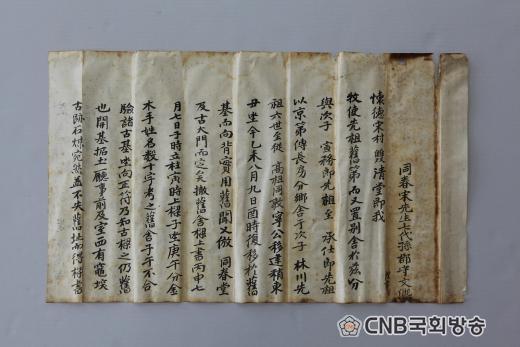 同春宋先生七代孫
懷德宋村雙淸堂卽我
牧使先祖舊第而又置別舍於
與次子 卽先祖至 承仕卽先祖
以京第傳長房分鄕舍于次子 林川先
祖六世至從高祖同敦寧公移建稍東
丑坐今乙未八月九日酉時復移於舊
基而向背實用舊開又倣 同春堂
及古大門而定矣撤舊舍樑上書丙申七
月七日子時立柱寅時上樑子坐庚午分金
木手姓名數十字考之舊舍子午不合
驗諸古基坐向正符乃知古樑之仍舊
也開基拓土廳事前及室西有竈埃
古跡石 宛然益不失舊址而得 書
CNB국회방송